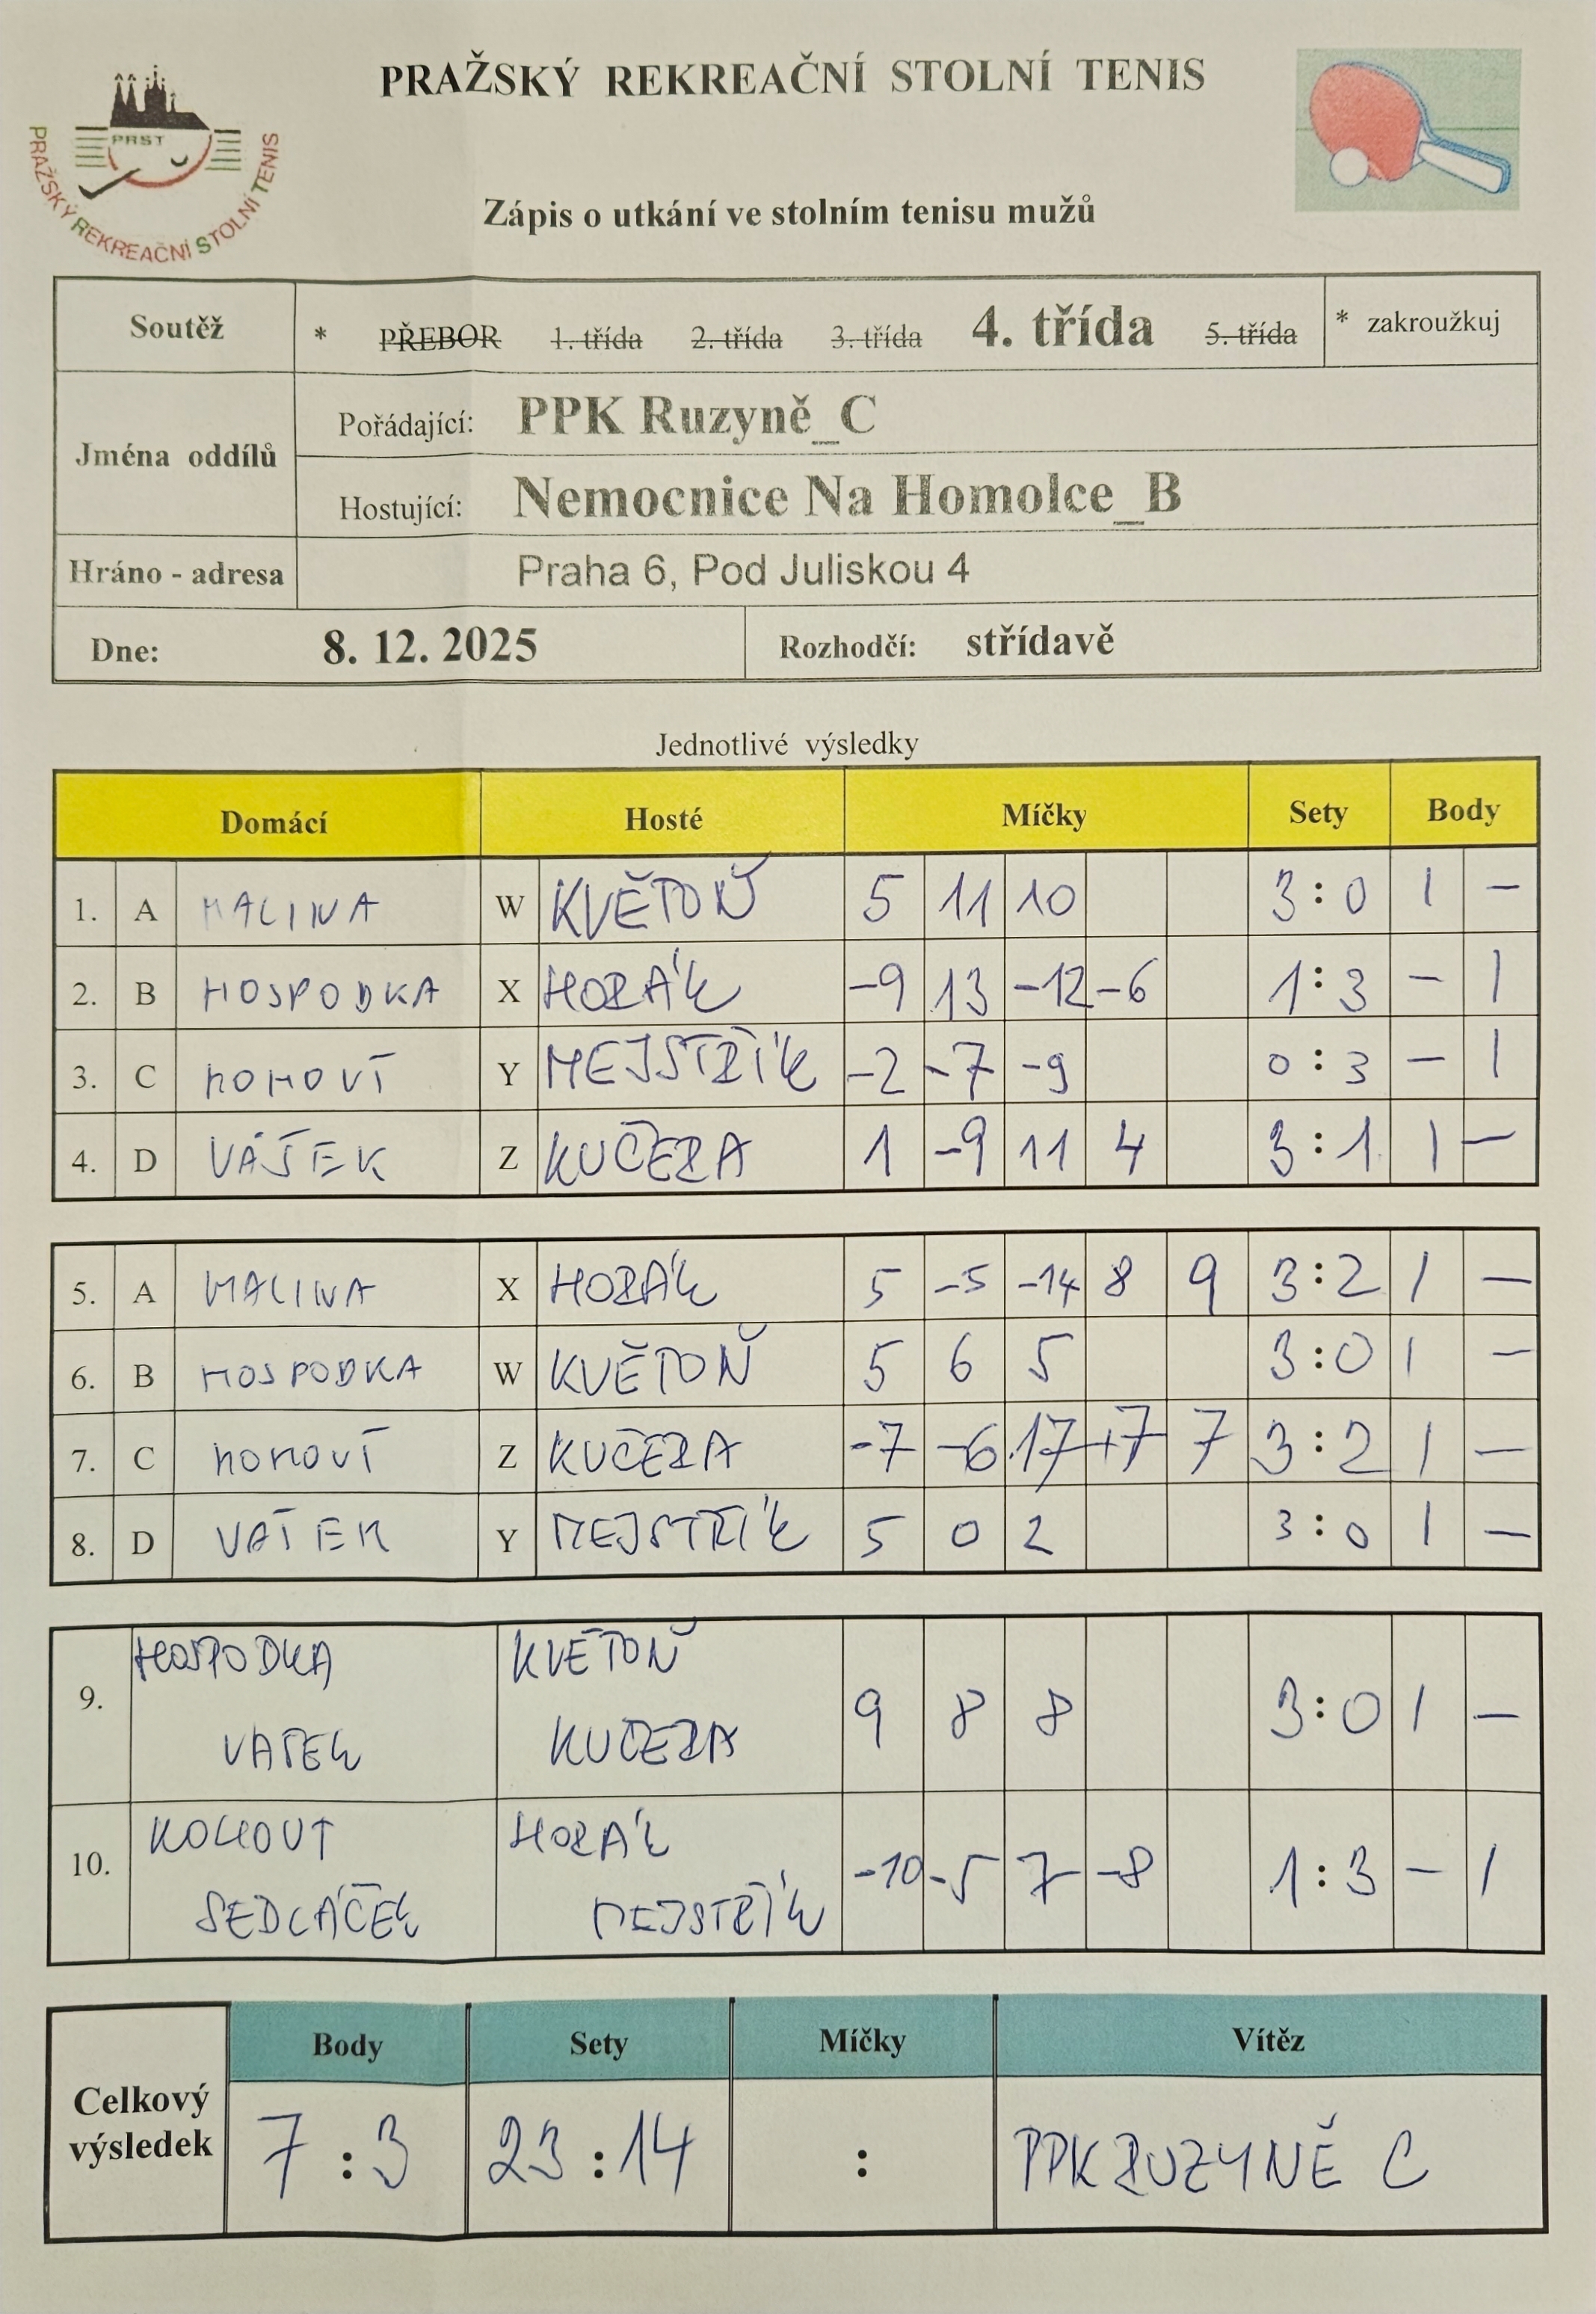 PRAŽSKÝ REKREAČNÍ STOLNÍ TENIS
PRST
PRAŽSKÝ REKREAČNÍ STOLNÍ TENIS
Zápis o utkání ve stolním tenisu mužů
Soutěž * PŘEBOR 1. třída 2. třída 3. třída 4. třída 5. třída * zakroužkuj
Jména oddílů
Pořádající: PPK Ruzyně_C
Hostující: Nemocnice Na Homolce_B
Hráno - adresa Praha 6, Pod Juliskou 4
Dne: 8. 12. 2025 Rozhodčí: střídavě
Jednotlivé výsledky
Domácí Hosté Míčky Sety Body
1. A MALINA W KVĚTOŇ 5 11 10 3:0 1 –
2. B HOSPODKA X HORÁK -9 13 -12 -6 1:3 – 1
3. C KOHOUT Y MEJSTŘÍK -2 -7 -9 0:3 – 1
4. D VÁŠEK Z KUČERA 1 -9 11 4 3:1 1 –
5. A MALINA X HORÁK 5 -5 -14 8 9 3:2 1 –
6. B HOSPODKA W KVĚTOŇ 5 6 5 3:0 1 –
7. C KOHOUT Z KUČERA -7 -6 17 +7 7 3:2 1 –
8. D VAŠEK Y MEJSTŘÍK 5 0 2 3:0 1 –
HOSPODKA KVĚTOŇ
9. 9 8 8 3:0 1 –
VAŠEK KUČERA
KOHOUT HORÁK
10. -10 -5 7 -8 1:3 – 1
SEDLÁČEK MEJSTŘÍK
Body Sety Míčky Vítěz
Celkový výsledek 7:3 23:14 : PPK RUZYNĚ C